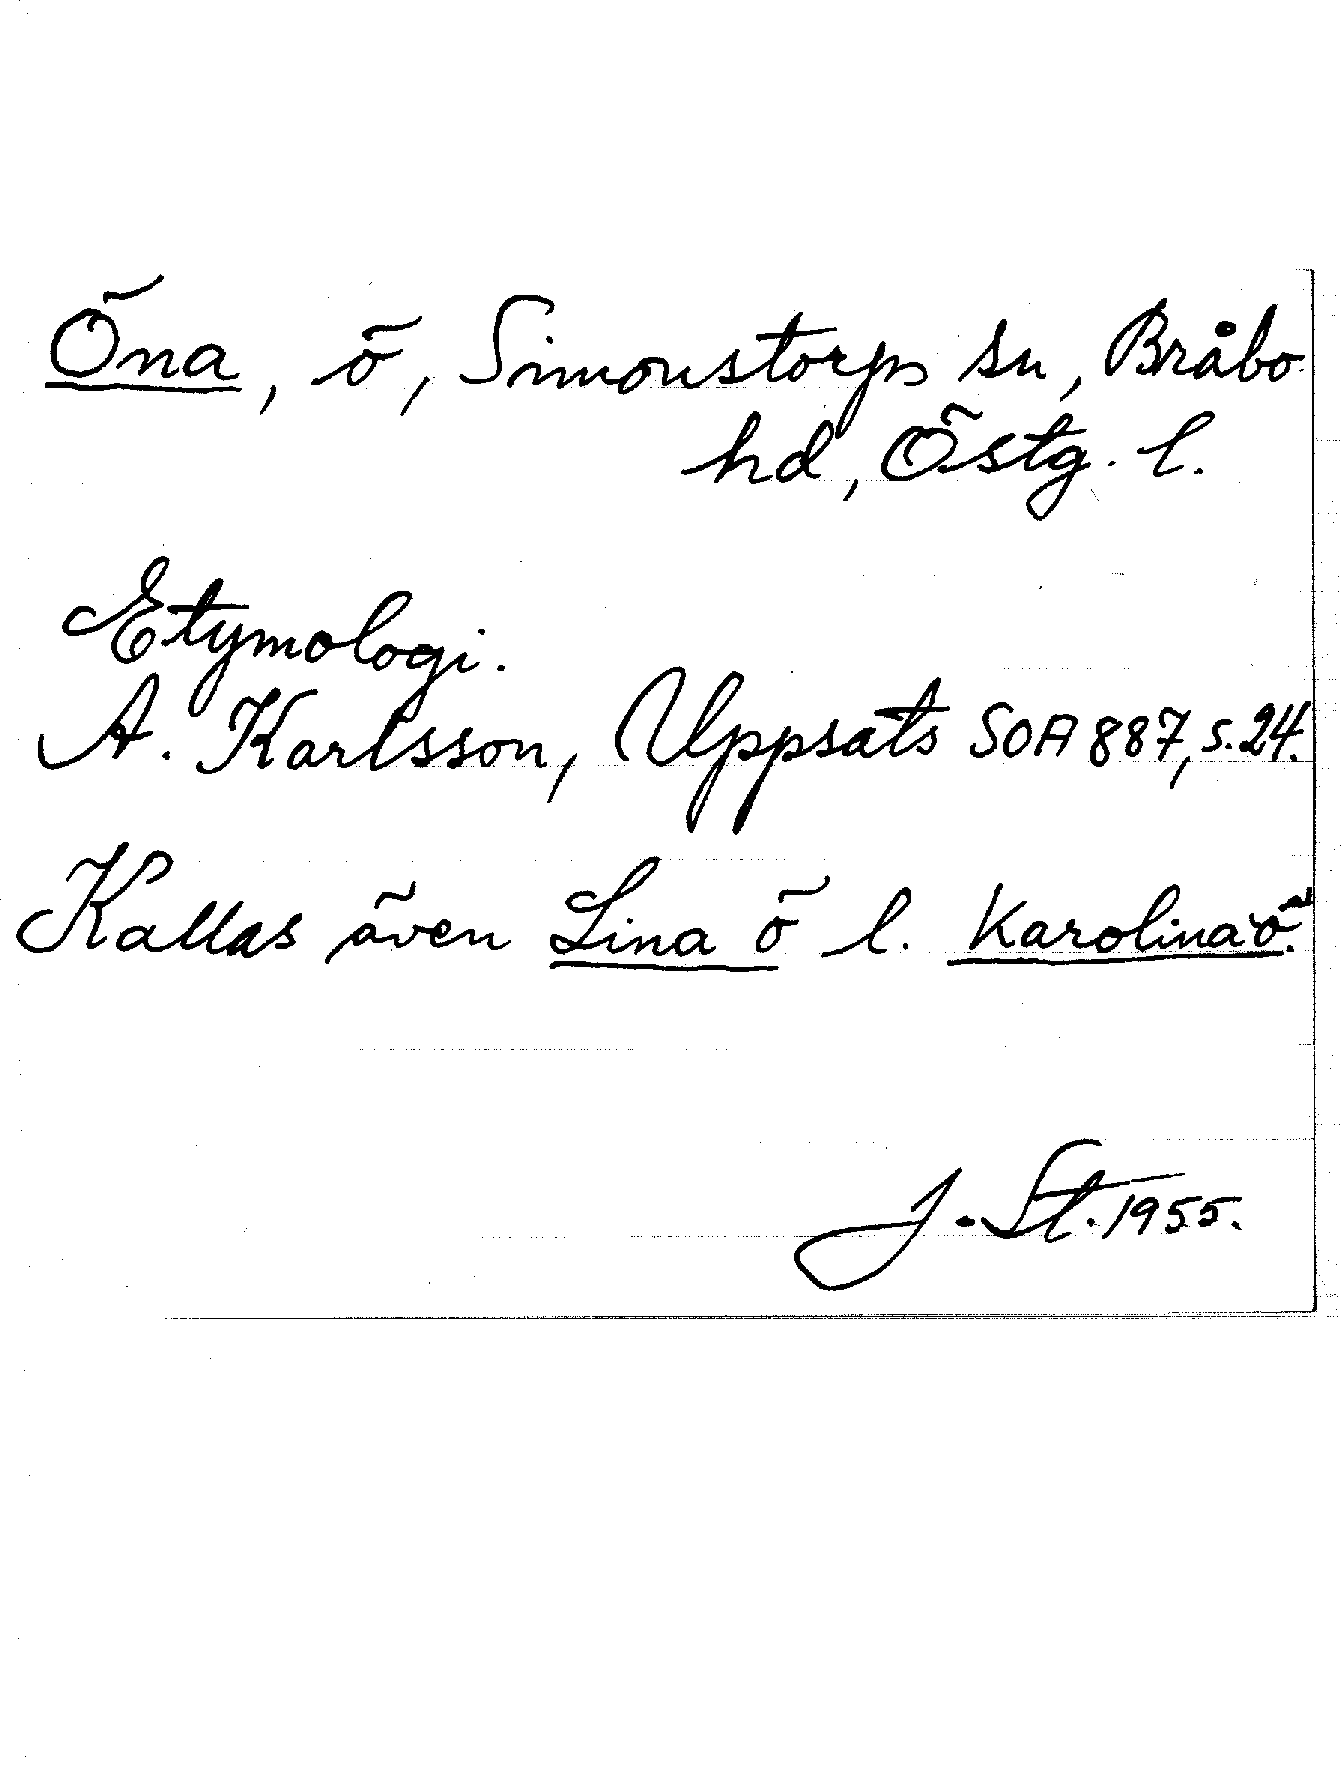 Öna, ö, Simonstorps sn, Bråbo
hd, Östg. l.
Etymologi.
A. Karlsson, Uppsats SOA 887, s. 24.
Kallas även Lina ö l. Karolinaö.
J. St. 1955.